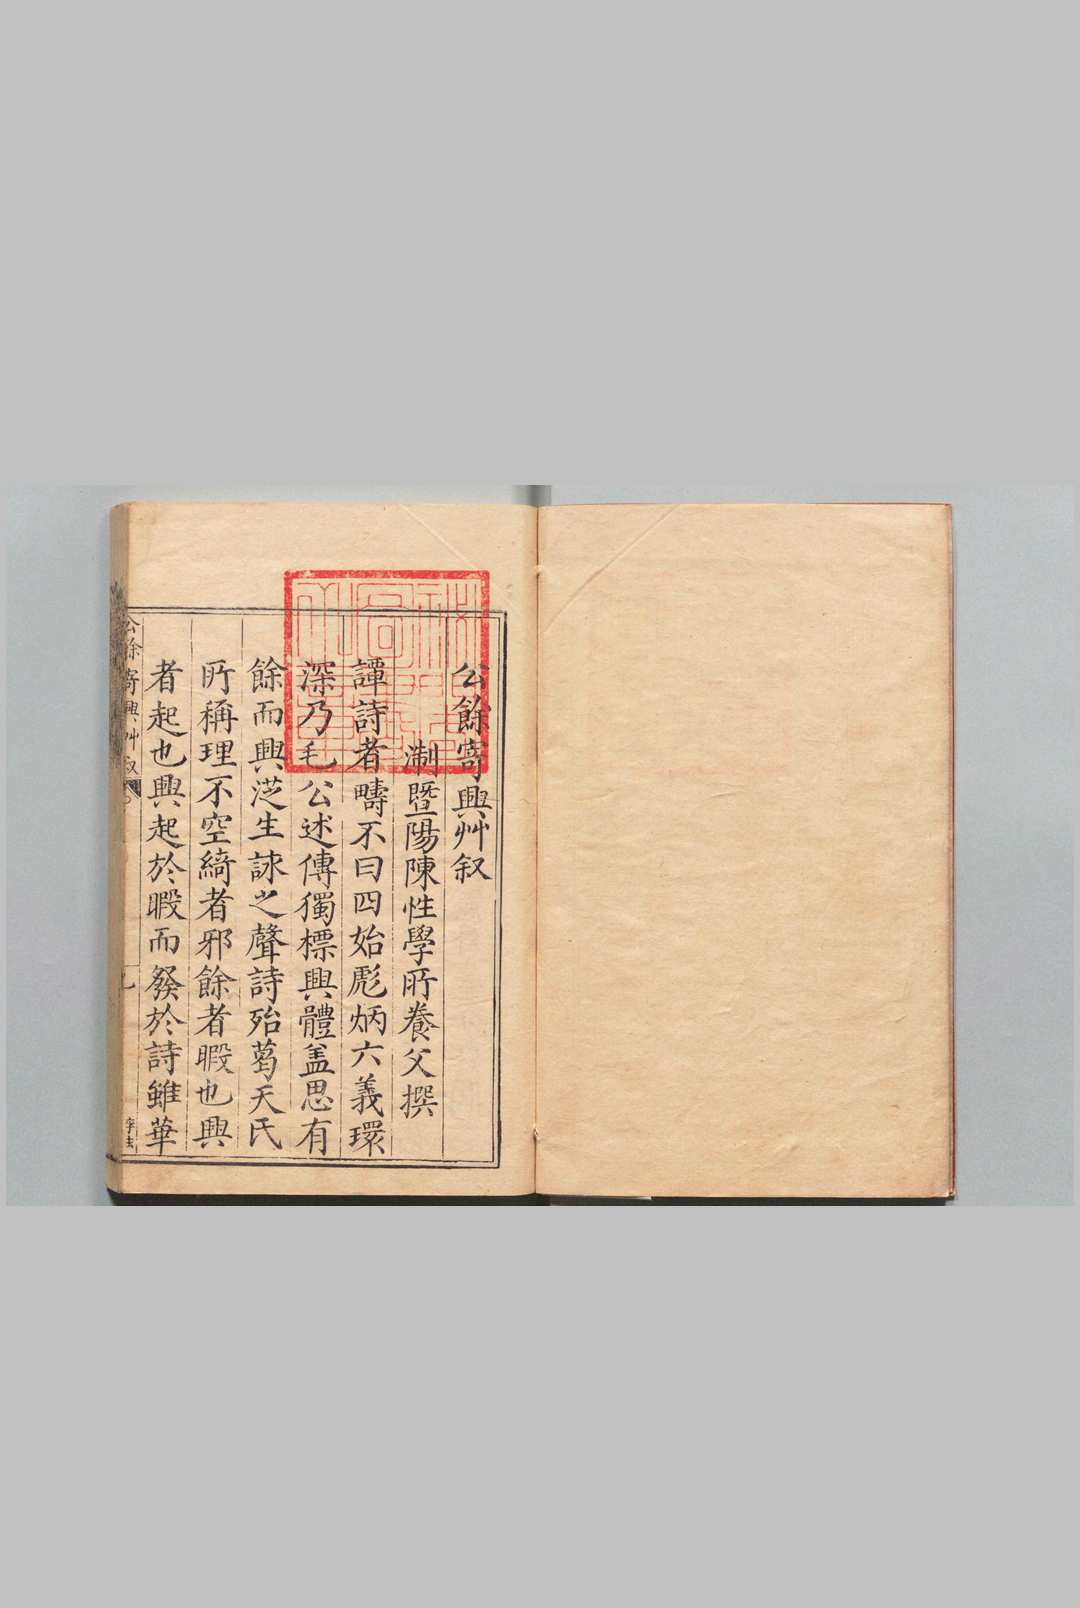 公餘寄興艸叙
淛暨陽陳性學所養父撰
譚詩者疇不曰四始彪炳六義環
深乃毛公述傳獨標興體盖思有
餘而興涖生詠之聲詩殆葛天氏
所稱理不空綺者邪餘者暇也興
者起也興起於暇而發於詩雖華
公餘寄興艸叙